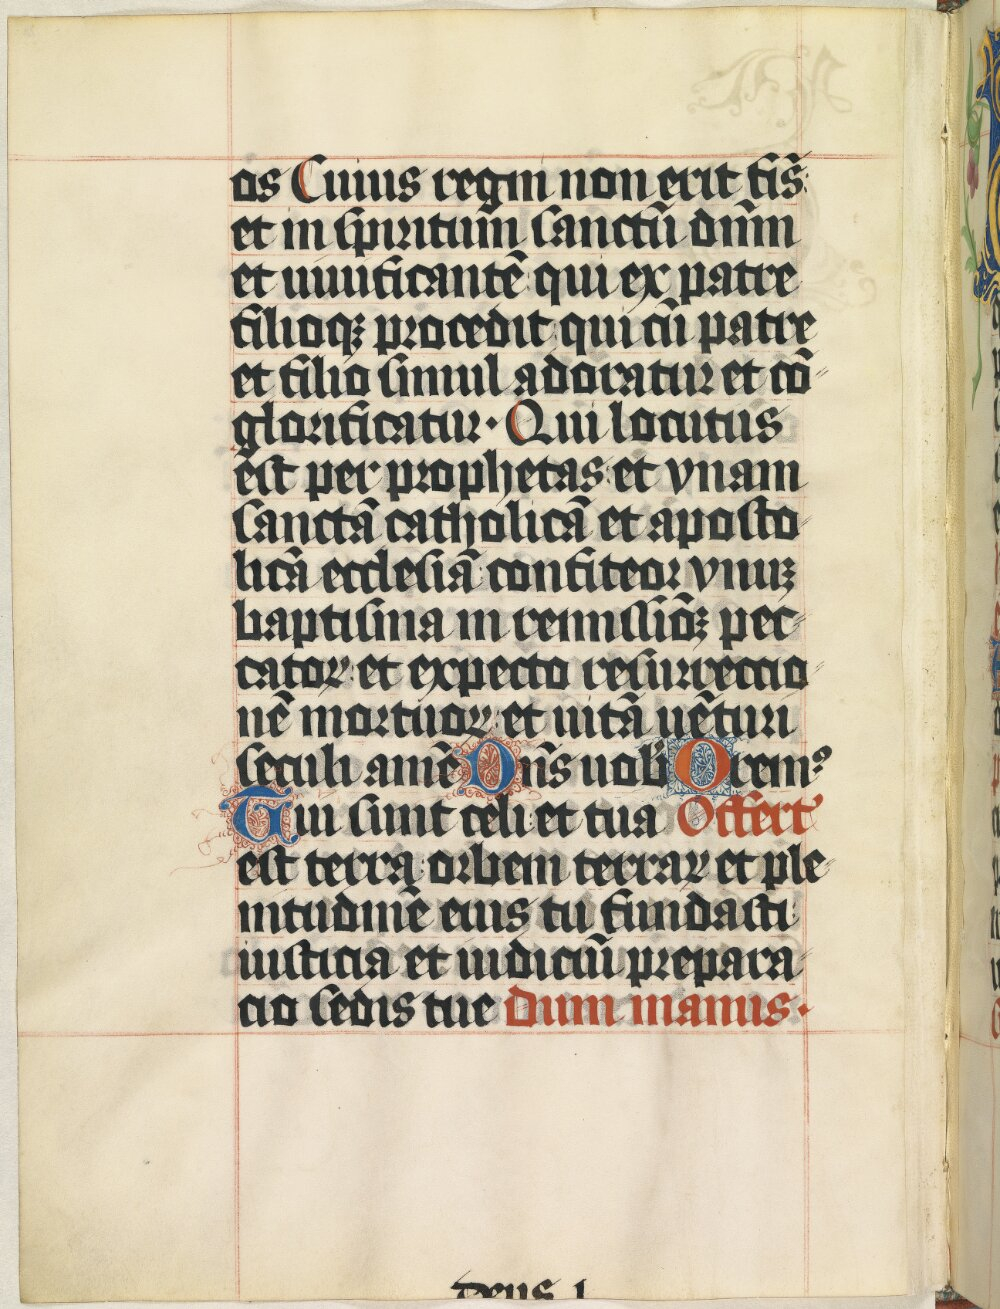 os Cuius regni non erit fis̄
et in spiritum̄ sanctū dn̄m
et uiuificantē qui ex patre
filioqꝫ procedit qui cū patre
et filio simul adoratur et cō
glorificatur · Qui locutus
est per prophetas et vnam
sanctā catholicā et aposto
licā ecclesiā confiteor vnuꝫ
baptisma in remissiōꝫ pec
catoꝝ et expecto resurrectio
nē mortuoꝝ et uitā uēturi
seculi amē Dn̄s uob Orem⁹
Tui sunt celi et tua Offert'
est terra orbem terraꝝ et ple
nitudinē eius tu fundasti
iusticia et iudiciū prepara
cio sedis tue Dum manus ·